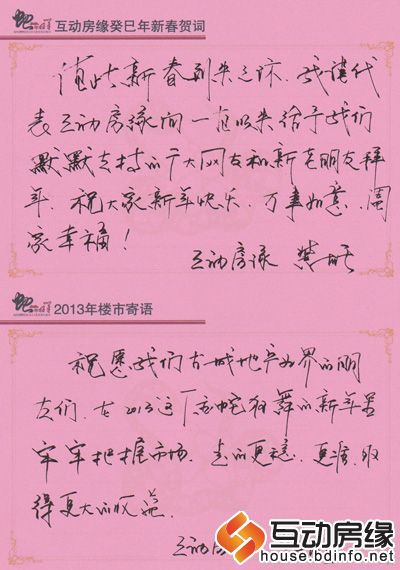 互动房缘癸巳年新春贺词
值此新春到来之际，我谨代
表互动房缘向一直以来给予我们
默默支持的广大网友和新老朋友拜
年，祝大家新年快乐，万事如意，阖
家幸福！
互动房缘
2013年楼市寄语
祝愿我们古城地产业界的朋
友们，在2013这个金蛇狂舞的新年里
牢牢把握市场，走的更稳，更准，取
得更大的收益。
互动房
互动房缘
house.bdinfo.net